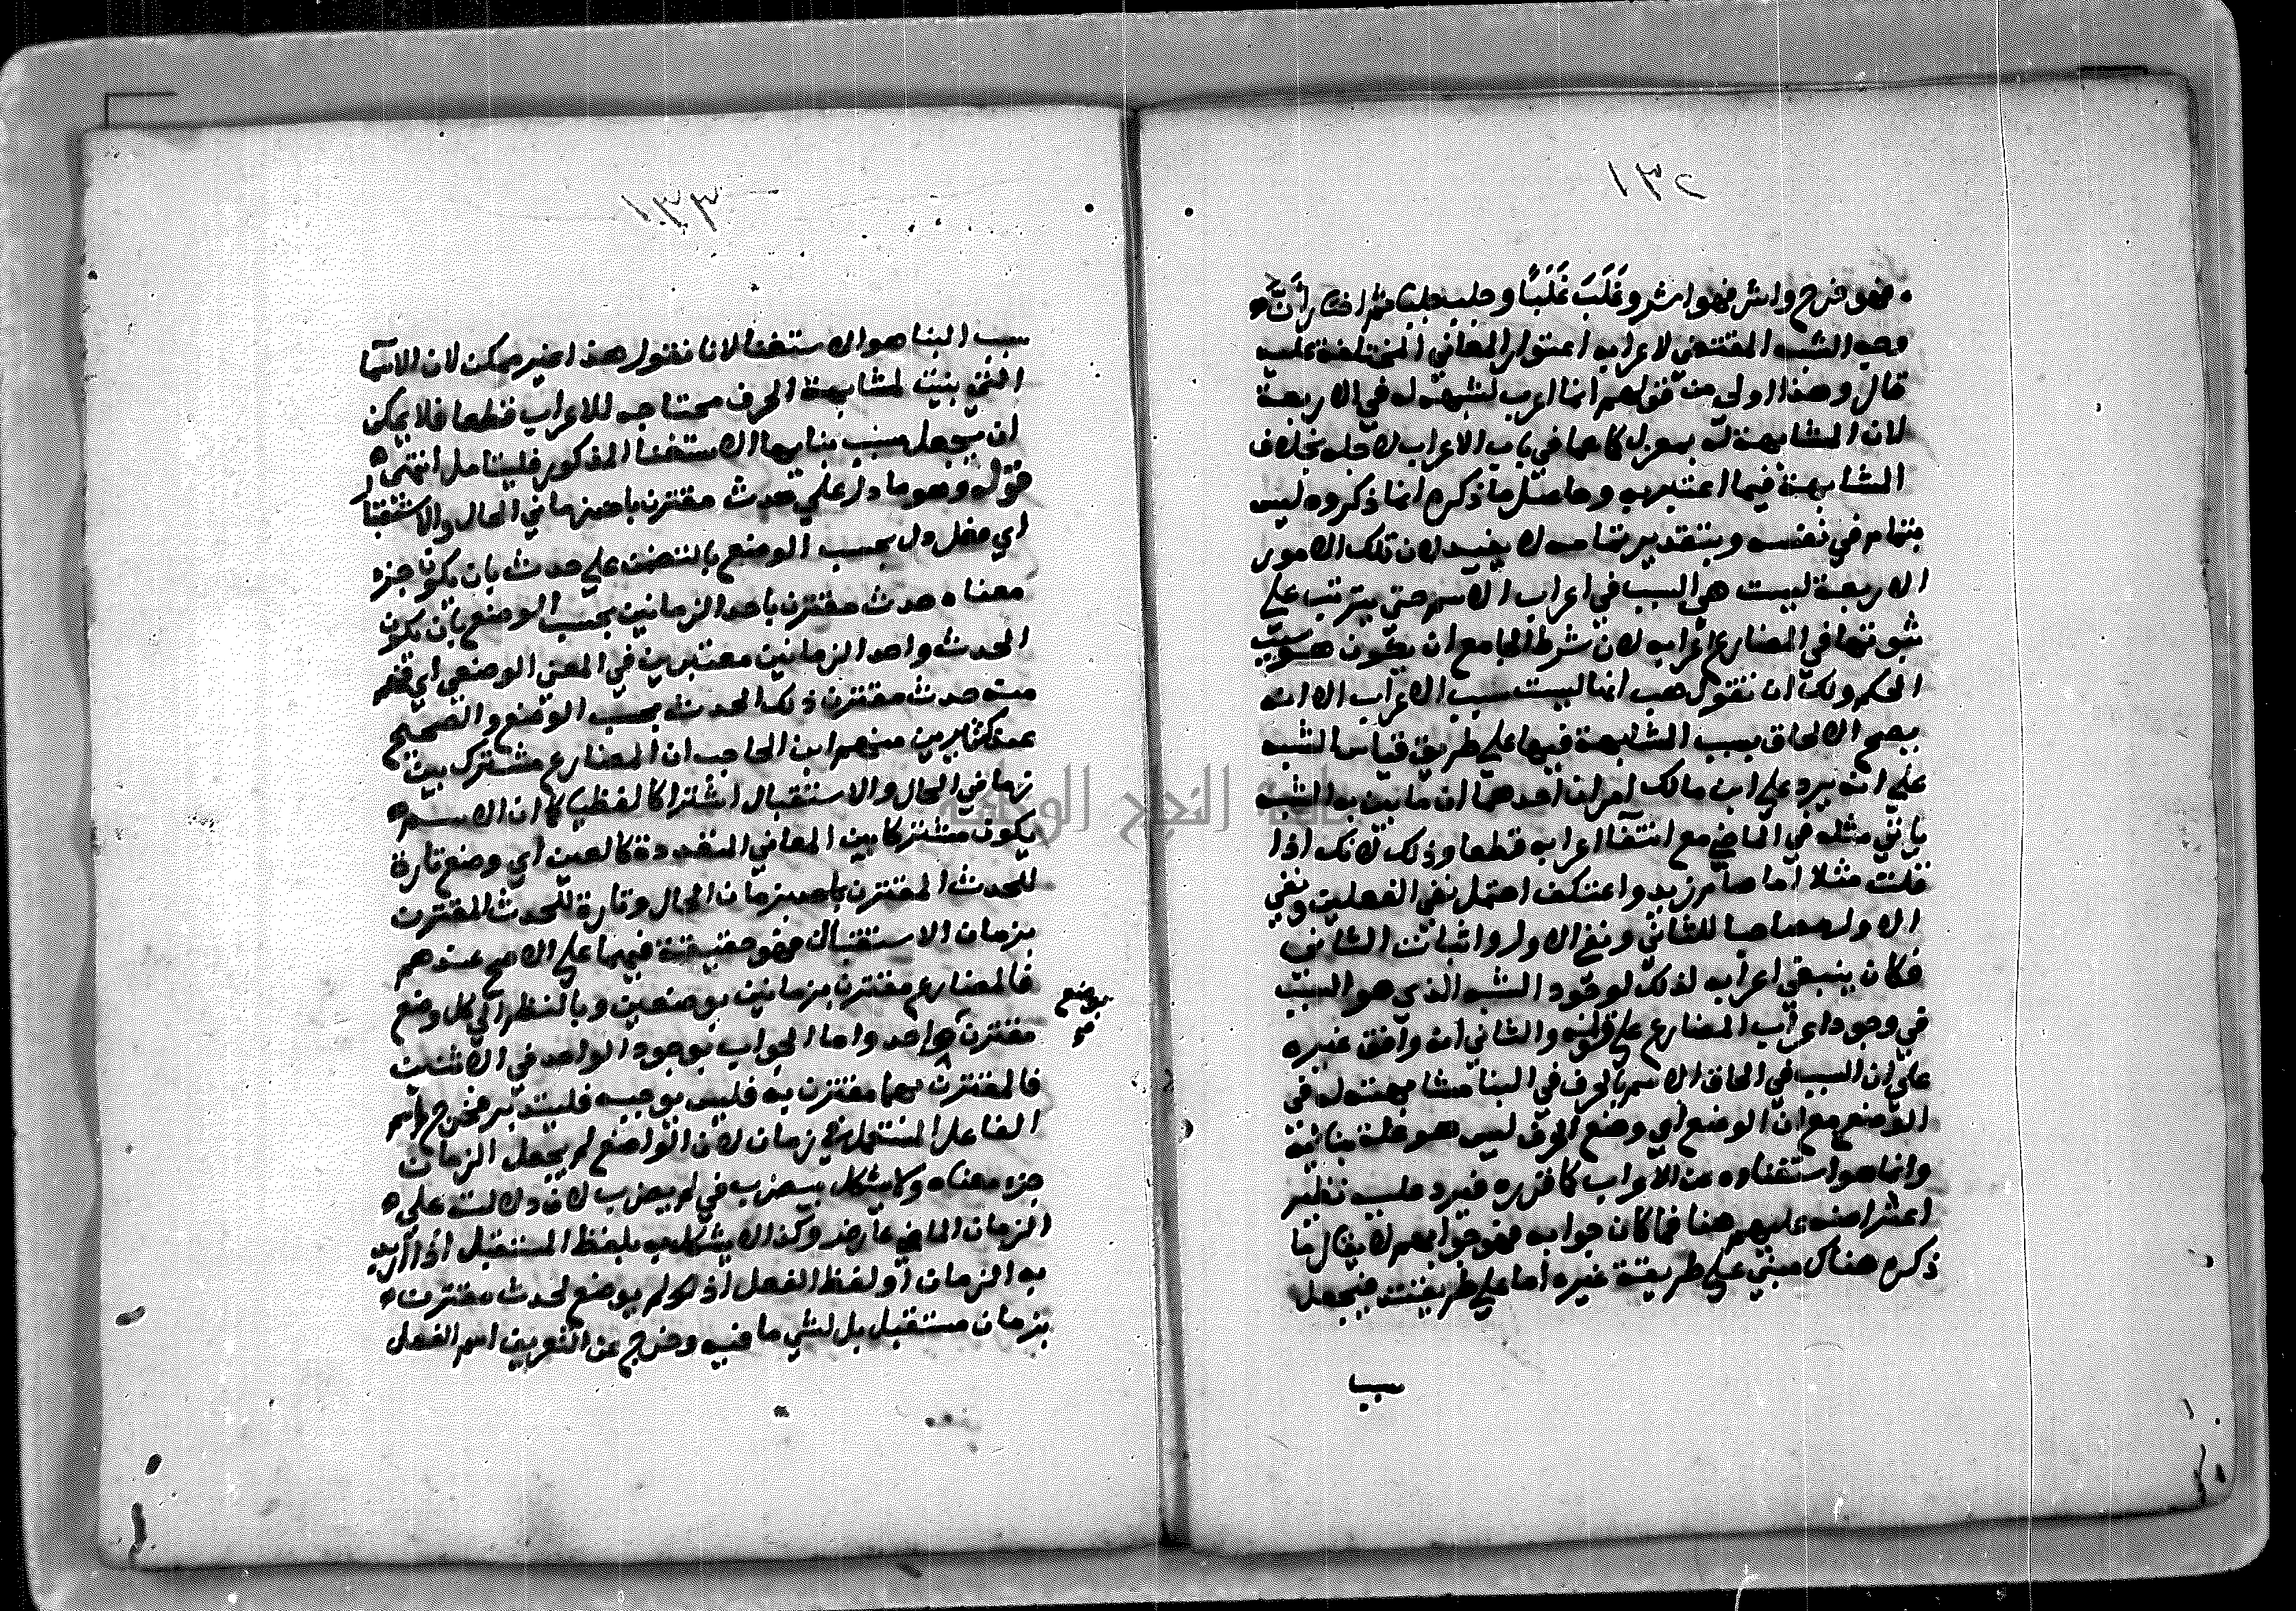 ١٣٢
فهو فرح واشر فهو اشر وغَلَبَ غَلَبًا وجلب جلبا ثم اختار أنّ
وجه الشبه المقتضي لاعرابه اعتوار المعاني المختلفة عليه
قال وهذا اولى من قولهم انما اعرب لشبهه له في الاربعة
لان المشابهة له بمعزل كاعما في باب الاعراب لاجله بخلاف
المشابهة فيما اعتبرته وحاصل ما ذكره انما ذكروه ليس
بتام في نفسه وبتقدير تمامه لا يفيد لان تلك الامور
الاربعة ليست هي السبب في اعراب الاسم حتى يترتب على
ثبوتها في المضارع اعرابه لان شرط الجامع ان يكون هو سبب
الحكم ولك ان تقول هب انها ليست سبب الاعراب الا انه
يصح الالحاق بسبب المشابهة فيها على طريق قياس الشبه
على انه يرد على ابن مالك امران احدهما ان ما بين به الشبه
ياتي مثله في الماضي مع انتفاء اعرابه قطعا وذلك لانك اذا
قلت مثلا اما صام زيد واعتكف احتمل نفي الفعلين ونفي
الاول مصاحبا للثاني ونفي الاول واثبات الثاني
فكان ينبغي اعرابه لذلك لوجود الشبه الذي هو السبب
في وجود اعراب المضارع على قوله والثاني انه وافق غيره
على ان السبب في الحاق الاسم بالحرف في البنا مشابهته له في
الوضع مع انّ الوضع اي وضع الحرف ليس هو علة بنائه
وانما هو استغناوه عن الاعراب كما قرره فيرد عليه نظير
اعتراضه عليهم هنا فما كان جوابه فهو جوابهم لا يقال ما
ذكره هناك مبني على طريقة غيره اما على طريقته فيجعل
سبب
١٣٣
سبب البنا هو الاستغنا لانا نقول هذا غير ممكن لان الاسما
التي بنيت لمشابهة الحرف محتاجه للاعراب قطعا فلا يمكن
ان يجعل سبب بنايها الاستغنا المذكور فليتامل انتهى
قوله وهو ما دل على حدث مقترن باحد زماني الحال والاستقبال
اي فعل دل بحسب الوضع بالتضمن على حدث بان يكون جزء
معناه حدث مقترن باحد الزمانين بحسب الوضع بان يكون
الحدث واحد الزمانين معتبرين في المعنى الوضعي اي فهم
منه حدث مقترن ذلك الحدث بحسب الوضع والصحيح
عند كثيرين منهم ابن الحاجب ان المضارع مشترك بين
زماني الحال والاستقبال اشتراكا لفظيا كما ان الاسم
يكون مشتركا بين المعاني المتعددة كالعين اي وضع تارة
للحدث المقترن باحد زمان الحال وتارة للحدث المقترن
بزمان الاستقبال فهو حقيقة فيهما على الاصح عندهم
فالمضارع مقترن بزمانين بوضعين وبالنظر الى كل وضع
مقترن بواحد واما الجواب بوجود الواحد في الاثنين
بوضع
فالمقترن بهما مقترن به فليس بوجيه فليتدبر فخرج اسم
الفاعل المستعمل في زمان لان الواضع لم يجعل الزمان
جزء معناه ولا يشكل بيضرب في لم يضرب لان دلالته على
الزمان الماضي عارضة وكذا لا يشكل بلفظ المستقبل اذا اريد
به الزمان او لفظ الفعل اذ لم يوضع لحدث مقترن
بزمان مستقبل بل لشي ما فيه وخرج عن التعريف اسم الفعل